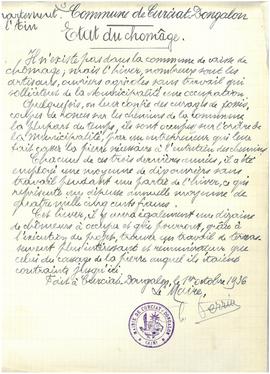 Département Commune de Curciat-Dongalon
de l'Ain
Etat du chomage.
Il n'existe pas dans la commune de caisse de
chomage, mais l'hiver, nombreux sont les
artisans, ouvriers agricoles sans travail qui
sollicitent de la Municipalité une occupation
Quelquefois, en leur confie des curages de fossés,
coupes de ronces sur les chemins de la commune
la plupart du temps, ils sont occupés sur l'ordre de
la Municipalité, par un entrepreneur qui leur
fait casser la pierre nécessaire à l'entretien des chemins
Chacun de ces trois dernières années, il a été
employé une moyenne de 10 ouvriers sans
travail pendant une partie de l'hiver, ce qui
représente une dépense annuelle moyenne de
quatre mille cinq cents francs.
Cet hiver, il y aura également une dizaine
de chomeurs à occuper et qui pourront, grâce à
l'exécution du projet, trouver un travail de terras-
sement plus intéressant et rémunérateur que
celui du cassage de la pierre auquel ils étaient
contraints jusqu'ici.
Fait à Curciat-Dongalon, le 1er octobre 1936
Le Maire,
MAIRIE DE CURCIAT-DONGALON
(AIN)